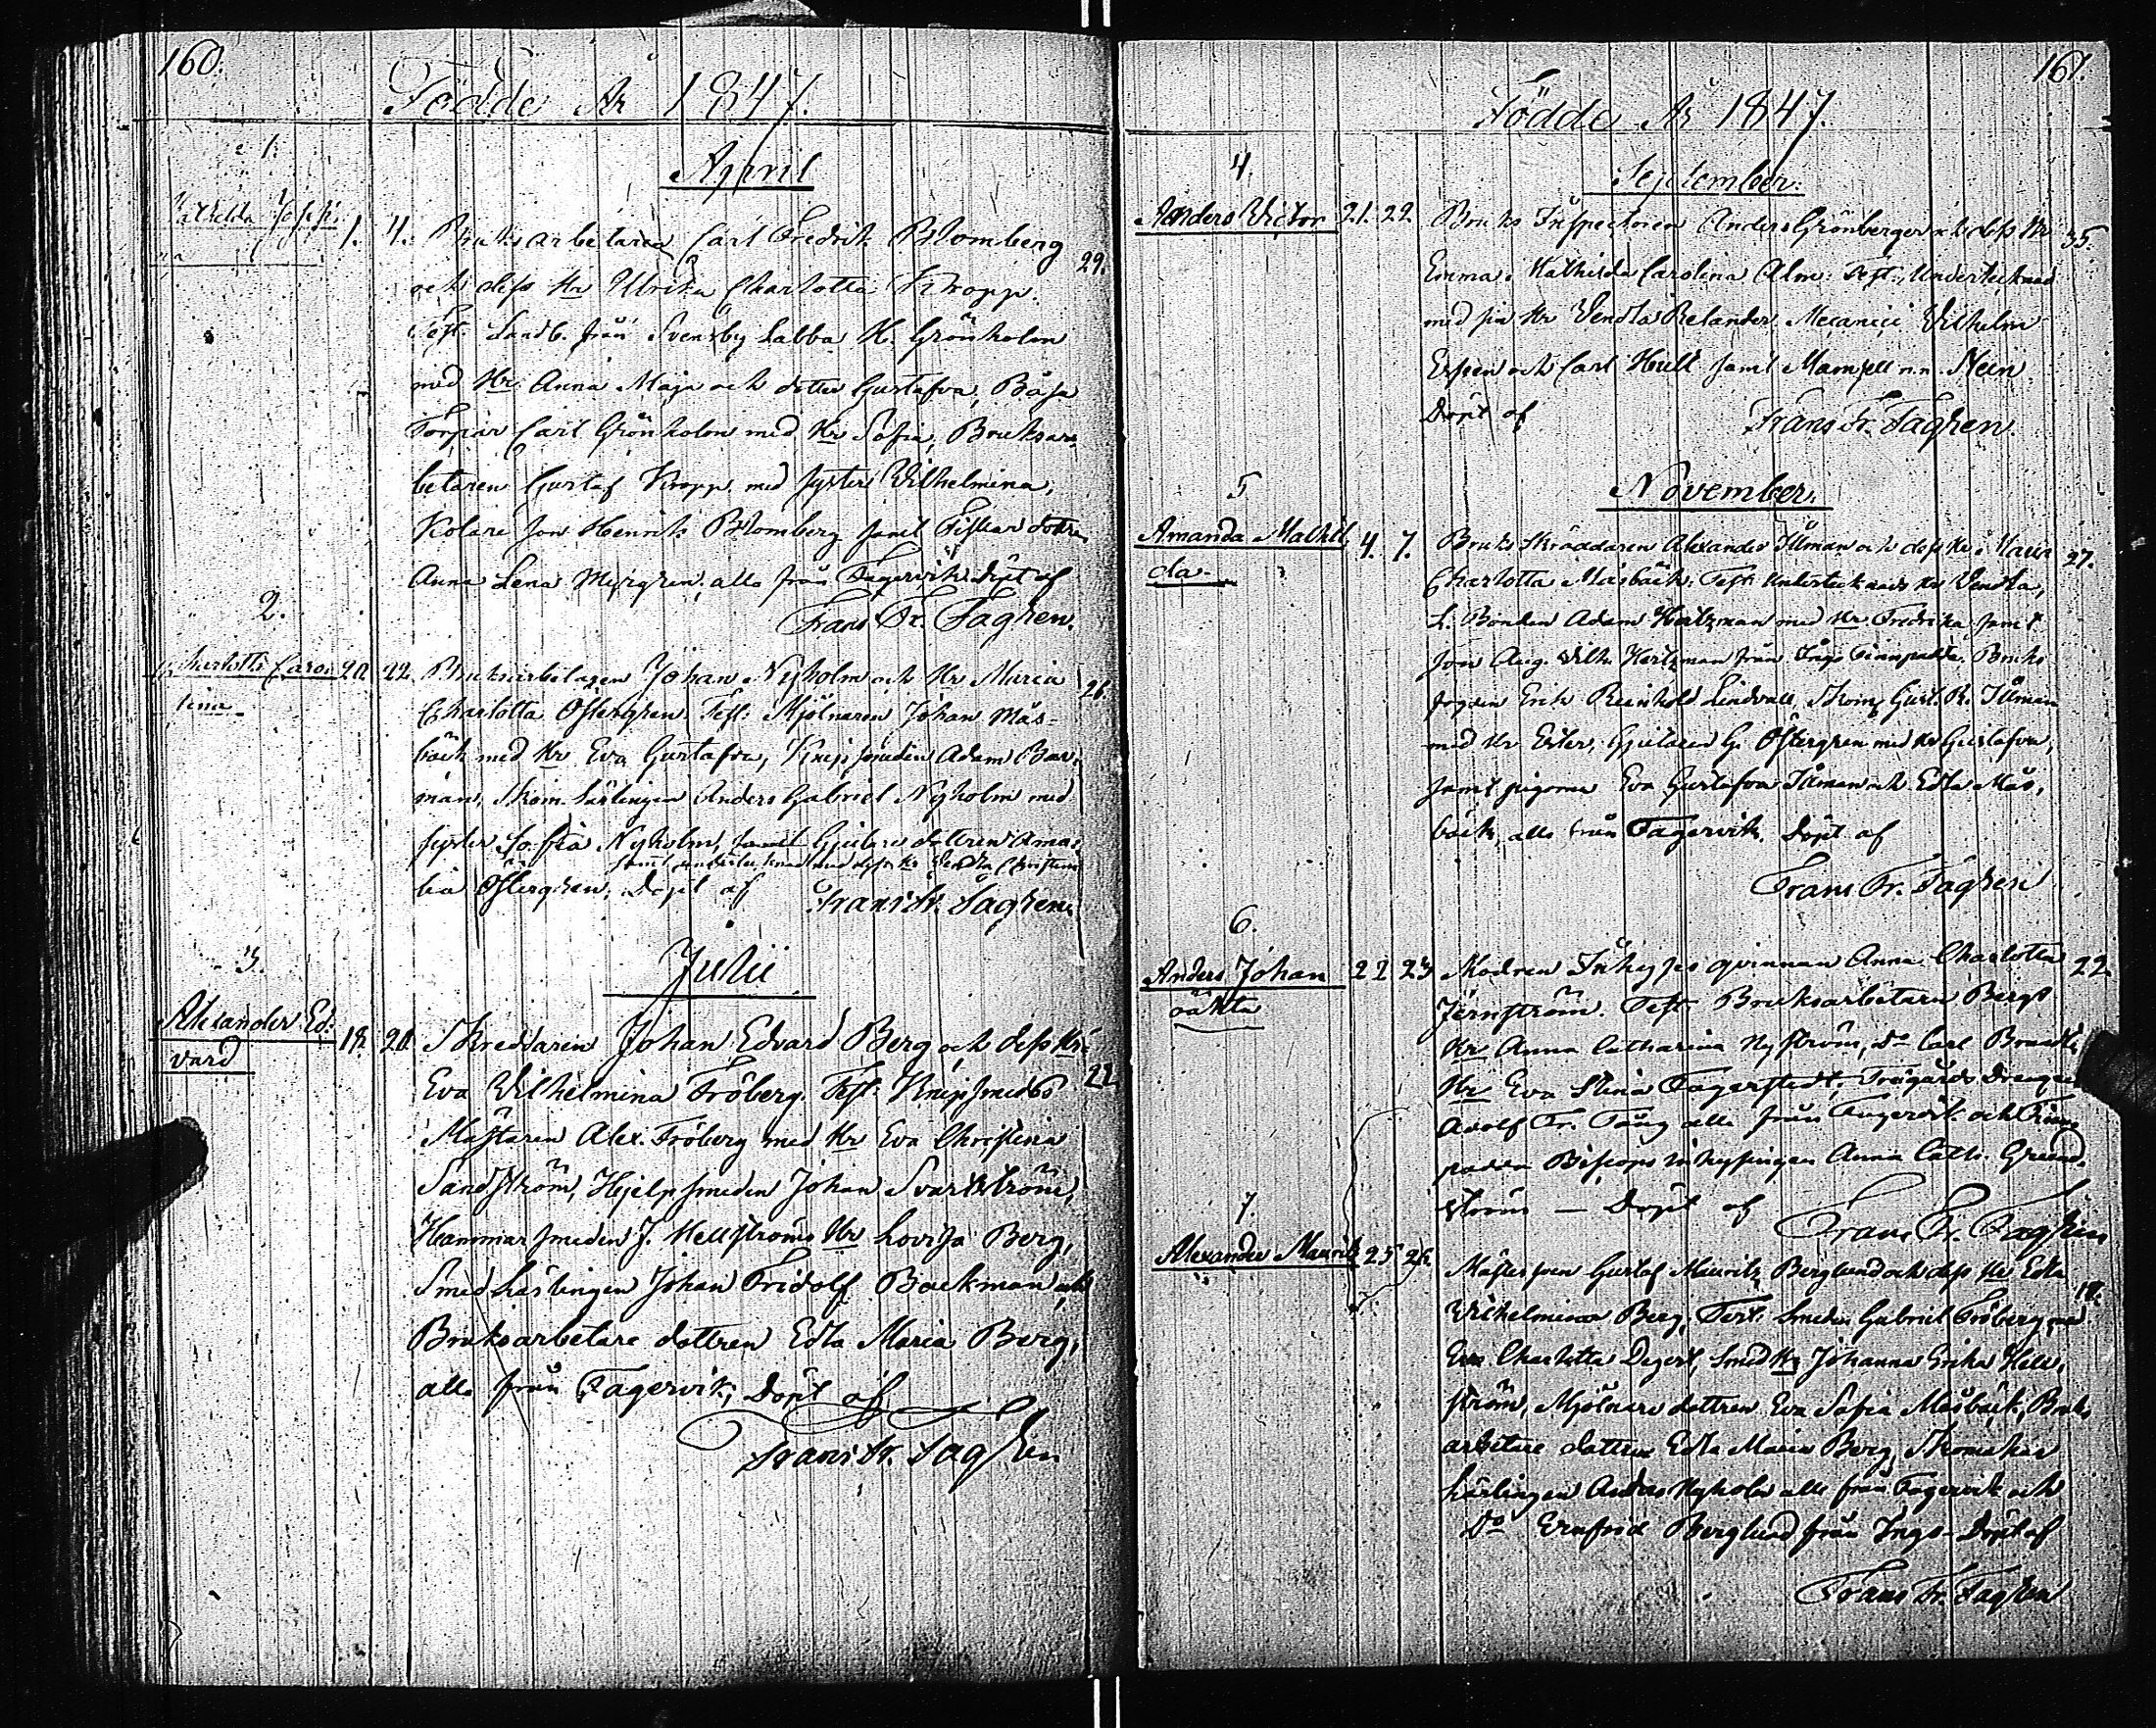 160.
Födde År 1847.
1.
April
Mathilda Josefi-
na
1. 4. Bruksarbetaren Carl Fredrik Blomberg
29.
och dess Hr Ulrika Charlotta Kropp.
Test. Landb. från Svensby Labba H. Grönholm
med Hr Anna Maja och dotter Gustafva, Båsa
Torpar Carl Grönholm med Hr Sofia, Bruksar-
betaren Gustaf Kropp med syster Wilhelmina,
Kolare son Henrik Blomberg samt Fiskar dottren
Anna Lena alla från Fagervik, döpt af
Frans Fr. Fagren.
2.
Charlotta Caro-
lina
20. 22. Bruksarbetaren Johan Nyholm och Hr Maria
26.
Charlotta Östergren. Test: Mjölnaren Johan Mås-
bäck med Hr Eva Gustafva, Knipsmeden Adam Bar-
man, Skom. Lärlingen Anders Gabriel Nyholm med
syster Sofia Nyholm, samt Gjutare dottren Ama-
samt med dess Hr Vendla Christina
lia Östergren. Döpt af
Frans Fr. Fagren.
3.
Julii
Alexander Ed-
vard
18. 20. Skreddaren Johan Edvard Berg och dess Hr
22
Eva Vilhelmina Fröberg. Test. Knipsmeds
Mästaren Alex. Fröberg med Hr Eva Christina
Sandström, Hjelpsmeden Johan Svartström,
Hammarsmeden J. Hellströms Hr Lovisa Berg,
Smed Lärlingen Johan Fridolf Backman och
Bruksarbetare dottren Edla Maria Berg,
alla från Fagervik; Döpt af
Frans Fr. Fagren
161.
Födde År 1847.
4.
September.
Anders Victor 21. 22. Bruks Inspectoren Anders Grönberger och dess Hr
35.
Emma Mathilda Carolina Alm: Test., Undertecknad
med sin Hr Vendla Relander, Mecanici Vilhelm
och Carl Hult samt Mamsell n.n.
Döpt af
Frans Fr. Fagren.
5
November.
Amanda Mathil-
da
4. 7. Bruks Skräddaren Alexander Illman och dess Hr Maria
27.
Charlotta Måsbäck. Test: Undertecknads Hr Vendla,
L. Bonden Adam Hertzman med Hr Fredrika samt
son Aug. Vilh. Hertzman från Ingo Bruks
fogden Erik Reinhold Lindvall, Skom. Gust. R. Illman
med Hr Ester, Gjutaren G. Östergren med Hr Gustafva,
samt pigorna Eva Gustafva Illman och Edla Mås-
bäck, alla från Fagervik. Döpt af
Frans Fr. Fagren
6.
Anders Johan
oäkta
22 23 Modren Inhyses qvinnan Anna Charlotta
22.
Jernström. Test. Bruksarbetaren Bergs
Hr Anna Catharina Nyström, Do Carl
Hr Eva Stina Fagerstedt, Trägårds Drengen
Adolf Fr. alla från Fagervik och Finn-
padda Biskops inhysingen Anna Cath. Grund-
ström — Döpt af
Frans Fr. Fagren
7.
Alexander Mauritz 25 26. Mästersven Gustaf Mauritz Berglund och dess Hr Edla
Vilhelmina Berg, Test. Smeden Gabriel Fröberg med
Charlotta Degert, Smed Hr Johanna Erika Hell-
ström, Mjölnare dottren Eva Sofia Måsbäck, Bruks
arbetare dottren Edla Maria Berg, Skomakar
Lärlingen Anders Nyholm alla från Fagervik och
Do Ernfrid Berglund från Ingo. Döpt af
Frans Fr. Fagren